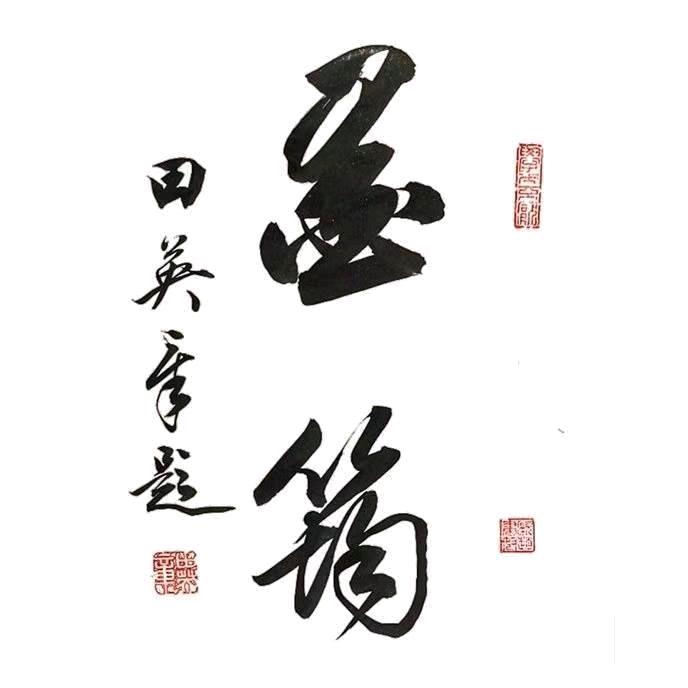 墨筠
田英章题